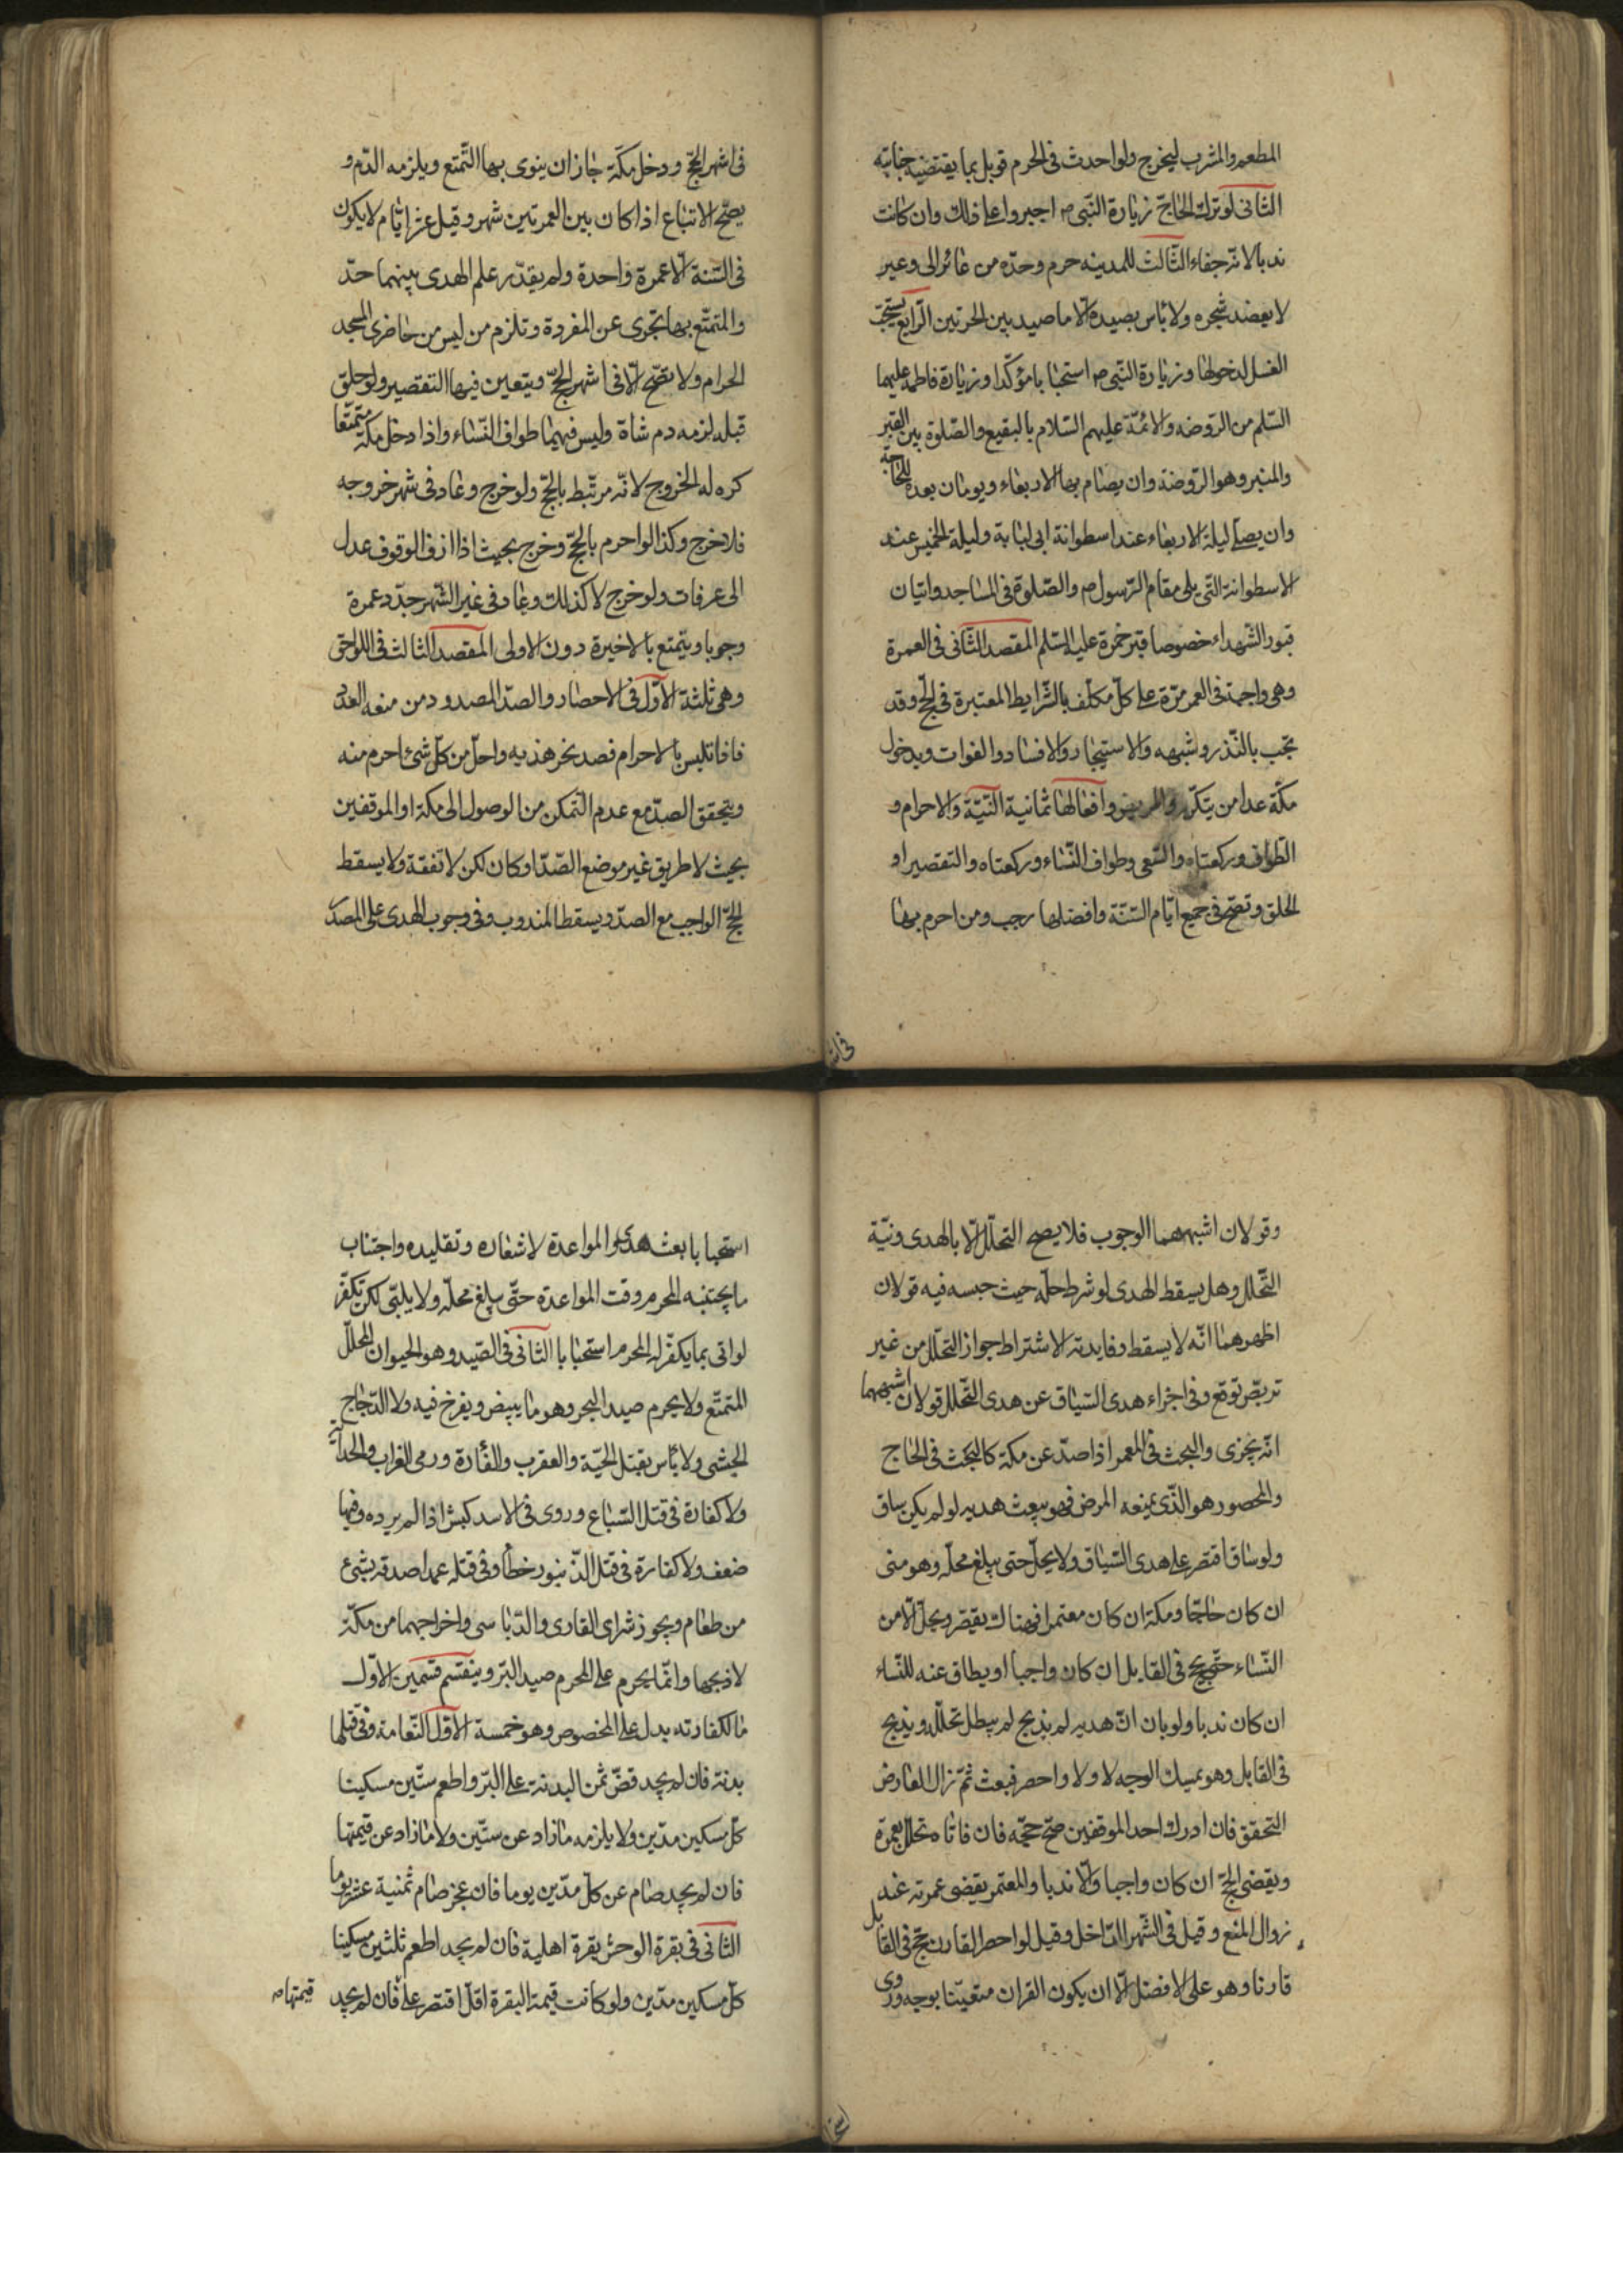 المطعم والمشرب ليخرج ولو احدث فى الحرم قوبل بما يقتضيه جنايته
الثانى لو ترك الحاجّ زيارة النّبى ص اجبروا على ذلك وان كانت
ندبا لانّه جفاء الثّالث للمدينه حرم وحدّه من عائر الى وعير
لا يعضد شجره ولا بأس بصيده الّا ما صيد بين الحرتين الرّابع يستحبّ
الغسل لدخولها وزيارة النّبى ص استحبابا مؤكّدا وزيارة فاطمه عليها
السّلم من الرّوضه والائمّة عليهم السّلام بالبقيع والصّلوة بين القبر
والمنبر وهو الرّوضة وان يصام بها الاربعاء ويومان بعده للحاجة
وان يصلّى ليلة الاربعاء عند اسطوانة ابى لبابة وليلة الخميس عند
الاسطوانة التّى يلى مقام الرّسول ص والصّلوة فى المساجد واتيان
قبور الشّهداء خصوصا قبر حمزة عليه السّلم المقصد الثّانى فى العمرة
وهى واجبة فى العمر مرّة على كلّ مكلّف بالشّرايط المعتبرة فى الحجّ وقد
تجب بالنّذر وشبهه والاستيجار والافساد والفوات وبدخول
مكّة عدا من يتكرّر والمريض وافعالها ثمانية النّيّة والاحرام و
الطّواف وركعتاه والسّعى وطواف النّساء وركعتاه والتقصير او
الحلق وتصحّ فى جميع ايّام السّنّة وافضلها رجب ومن احرم بها
فى اش
فى اشهر الحجّ ودخل مكّة جاز ان ينوى بها التّمتع ويلزمه الدّم و
يصحّ الاتباع اذا كان بين العمرتين شهر وقيل عشر ايّام لا يكون
فى السّنة الّا عمرة واحدة ولم يقدّر علم الهدى بينهما حدّ
والمتمتّع بها تجزى عن المفردة وتلزم من ليس من حاضرى المسجد
الحرام ولا تصّح الّا فى اشهر الحجّ ويتعين فيها التقصير ولو حلق
قبله لزمه دم شاة وليس فيهما طواف النّساء واذا دخل مكة متمتّعا
كره له الخروج لانّه مرتبط بالحجّ ولو خرج وعاد فى شهر خروجه
فلا حرج وكذا لو احرم بالحجّ وخرج بحيث اذا ازف الوقوف عدل
الى عرفات ولو خرج لا كذلك وعاد فى غير الشّهر جدّد عمرة
وجوبا ويتمتع بالاخيرة دون الاولى المقصد الثالث فى اللواحق
وهى ثلثة الاوّل فى الاحصار والصدّ المصدود من منعه العدوّ
فاذا تلبس بالاحرام فصد نحر هذيه واحلّ من كلّ شئ احرم منه
ويتحقق الصدّ مع عدم التّمكن من الوصول الى مكة او الموقفين
بحيث لا طريق غير موضع الصّدّ او كان لكن لا نفقة ولا يسقط
الحجّ الواجب مع الصدّ ويسقط المندوب وفى وجوب الهدى على المصدود
وقولان اشبههما الوجوب فلا يصح التحلّل الّا بالهدى ونيّة
التّحلل وهل يسقط الهدى لو شرط حلّه حيث حبسه فيه قولان
اظهرهما انّه لا يسقط وفايدته الاشتراط جواز التحلّل من غير
تربصّ توقع وفى اجزاء هدى السّياق عن هدى التّحلل قولان اشبههما
انّه يجزى والبحث فى المعمر اذا صدّ عن مكة كالبحث فى الحاج
والمحصور هو الذّى يمنعه المرض فهو يبعث هديه لو لم يكن ساق
ولو ساق اقتصر على هدى السّياق ولا يحلّ حتى يبلغ محلّه وهو منى
ان كان حاجّا ومكة ان كان معتمرا فهناك يقصّر ويحلّ الّا من
النّساء حتّى يحج فى القابل ان كان واجبا او يطاف عنه للنّساء
ان كان ندبا ولو بان انّ هديه لم يذبح لم يبطل تحلّله ويذبح
فى القابل وهو يمسك الوجه لا ولا واحصر فبعث ثمّ زال العارض
التحقق فان ادرك احد الموقفين صحّ حجّه فان فاتاه تحلّل بعمرة
ويقضى الحجّ ان كان واجبا والّا ندبا والمعتمر يقضى عمرته عند
زوال المنع وقيل فى الشّهر الدّاخل وقيل لو احصر القارن حجّ فى القابل
قارنا وهو على الافضل الّا ان يكون القران متعيّنا بوجه وروى
استحبابا بعث هدى والمواعدة لاشعاره وتقليده واجتناب
ما يجتنبه المحرم وقت المواعدة حتّى يبلغ محلّه ولا يلبّى لكن تكفّر
لو اتى بما يكفّر له المحرم استحبابا الثّانى فى الصّيد وهو الحيوان المحلّل
المتمتّع ولا يحرم صيد البحر وهو ما يبيض ويفرخ فيه ولا الدّجاج
الحبشى ولا بأس بقتل الحيّة والعقرب والفأرة ورمى الغراب والحدأة
ولا كفارة فى قتل السّباع وروى فى الاسد كبش اذا لم يرده وفيها
ضعف ولا كفارة فى قتل الذّنبور خطأ وفى قتله عمدا صدقه بشئ
من طعام ويجوز شراى القارى والدّباسى واخراجهما من مكّة
لا ذبحها وانّما يحرم على المحرم صيد البّر وينقسم قسمين الاوّل
ما لكفارته بدل على المخصوص وهو خمسة الاوّل النّعامة وفى قتلها
بدنة فان لم يجد قضّ ثمن البدنة على البّر واطعم ستّين مسكينا
كلّ مسكين مدّين ولا يلزمه ما زاد عن ستّين ولا ما زاد عن قيمتها
فان لم يجد صام عن كلّ مدّين يوما فان عجز صام ثمنية عشر يوما
الثّانى فى بقرة الوحش بقرة اهلية فان لم يجد اطعم ثلثين مسكينا
كلّ مسكين مدّين ولو كانت قيمة البقرة اقلّ اقتصر على فان لم يجد
قيمتها ص